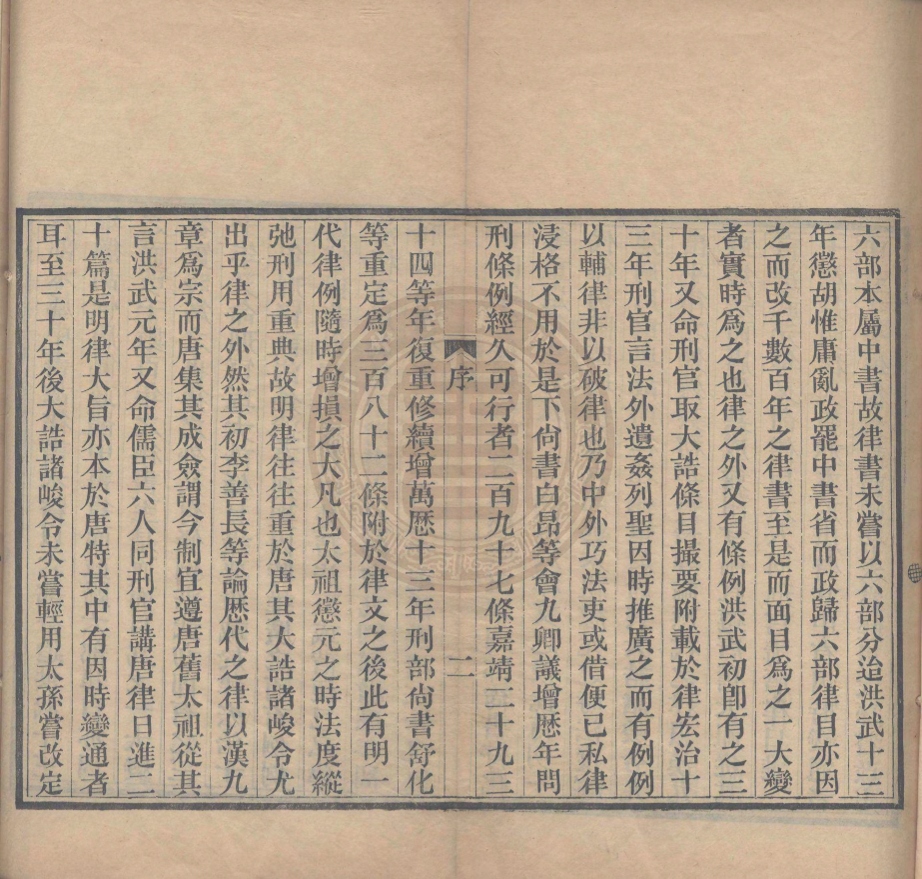 六部本屬中書故律書未嘗以六部分迨洪武十三
年懲胡惟庸亂政罷中書省而政歸六部律目亦因
之而改千數百年之律書至是而面目爲之一大變
者實時爲之也律之外又有條例洪武初卽有之三
十年又命刑官取大誥條目撮要附載於律宏治十
三年刑官言法外遺姦列聖因時推廣之而有例例
以輔律非以破律也乃中外巧法吏或借便己私律
浸格不用於是下尙書白昂等會九卿議增歷年問
刑條例經久可行者二百九十七條嘉靖二十九三
序 二
十四等年復重修續增萬歷十三年刑部尙書舒化
等重定爲三百八十二條附於律文之後此有明一
代律例隨時增損之大凡也太祖懲元之時法度縱
弛刑用重典故明律往往重於唐其大誥諸峻令尤
出乎律之外然其初李善長等論歷代之律以漢九
章爲宗而唐集其成僉謂今制宜遵唐舊太祖從其
言洪武元年又命儒臣六人同刑官講唐律日進二
十篇是明律大旨亦本於唐特其中有因時變通者
耳至三十年後大誥諸峻令未嘗輕用太孫嘗改定